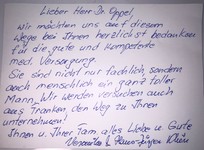 Lieber Herr Dr. Oppel,
wir möchten uns auf diesem
Wege bei Ihnen herzlichst bedanken
für die gute und kompetente
med. Versorgung.
Sie sind nicht nur fachlich, sondern
auch menschlich ein ganz toller
Mann. Wir werden versuchen auch
aus Franken den Weg zu Ihnen
unternehmen!
Ihnen u. Ihrer Fam. alles Liebe u. Gute
&